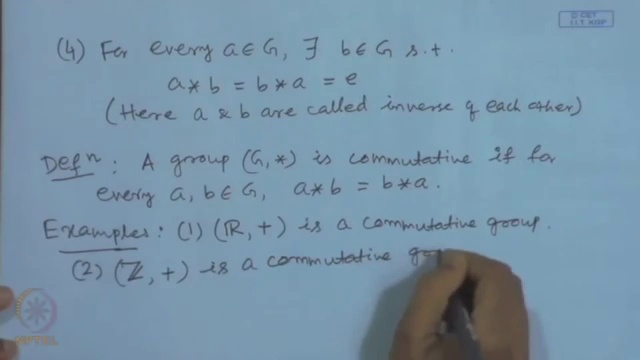 © CET
I.I.T. KGP
(4) For every a ∈ G, ∃ b ∈ G s.t.
a * b = b * a = e
(Here a & b are called inverse of each other)
Defⁿ : A group (G, *) is commutative if for
every a, b ∈ G, a * b = b * a.
Examples : (1) (ℝ, +) is a commutative group.
(2) (ℤ, +) is a commutative
NPTEL